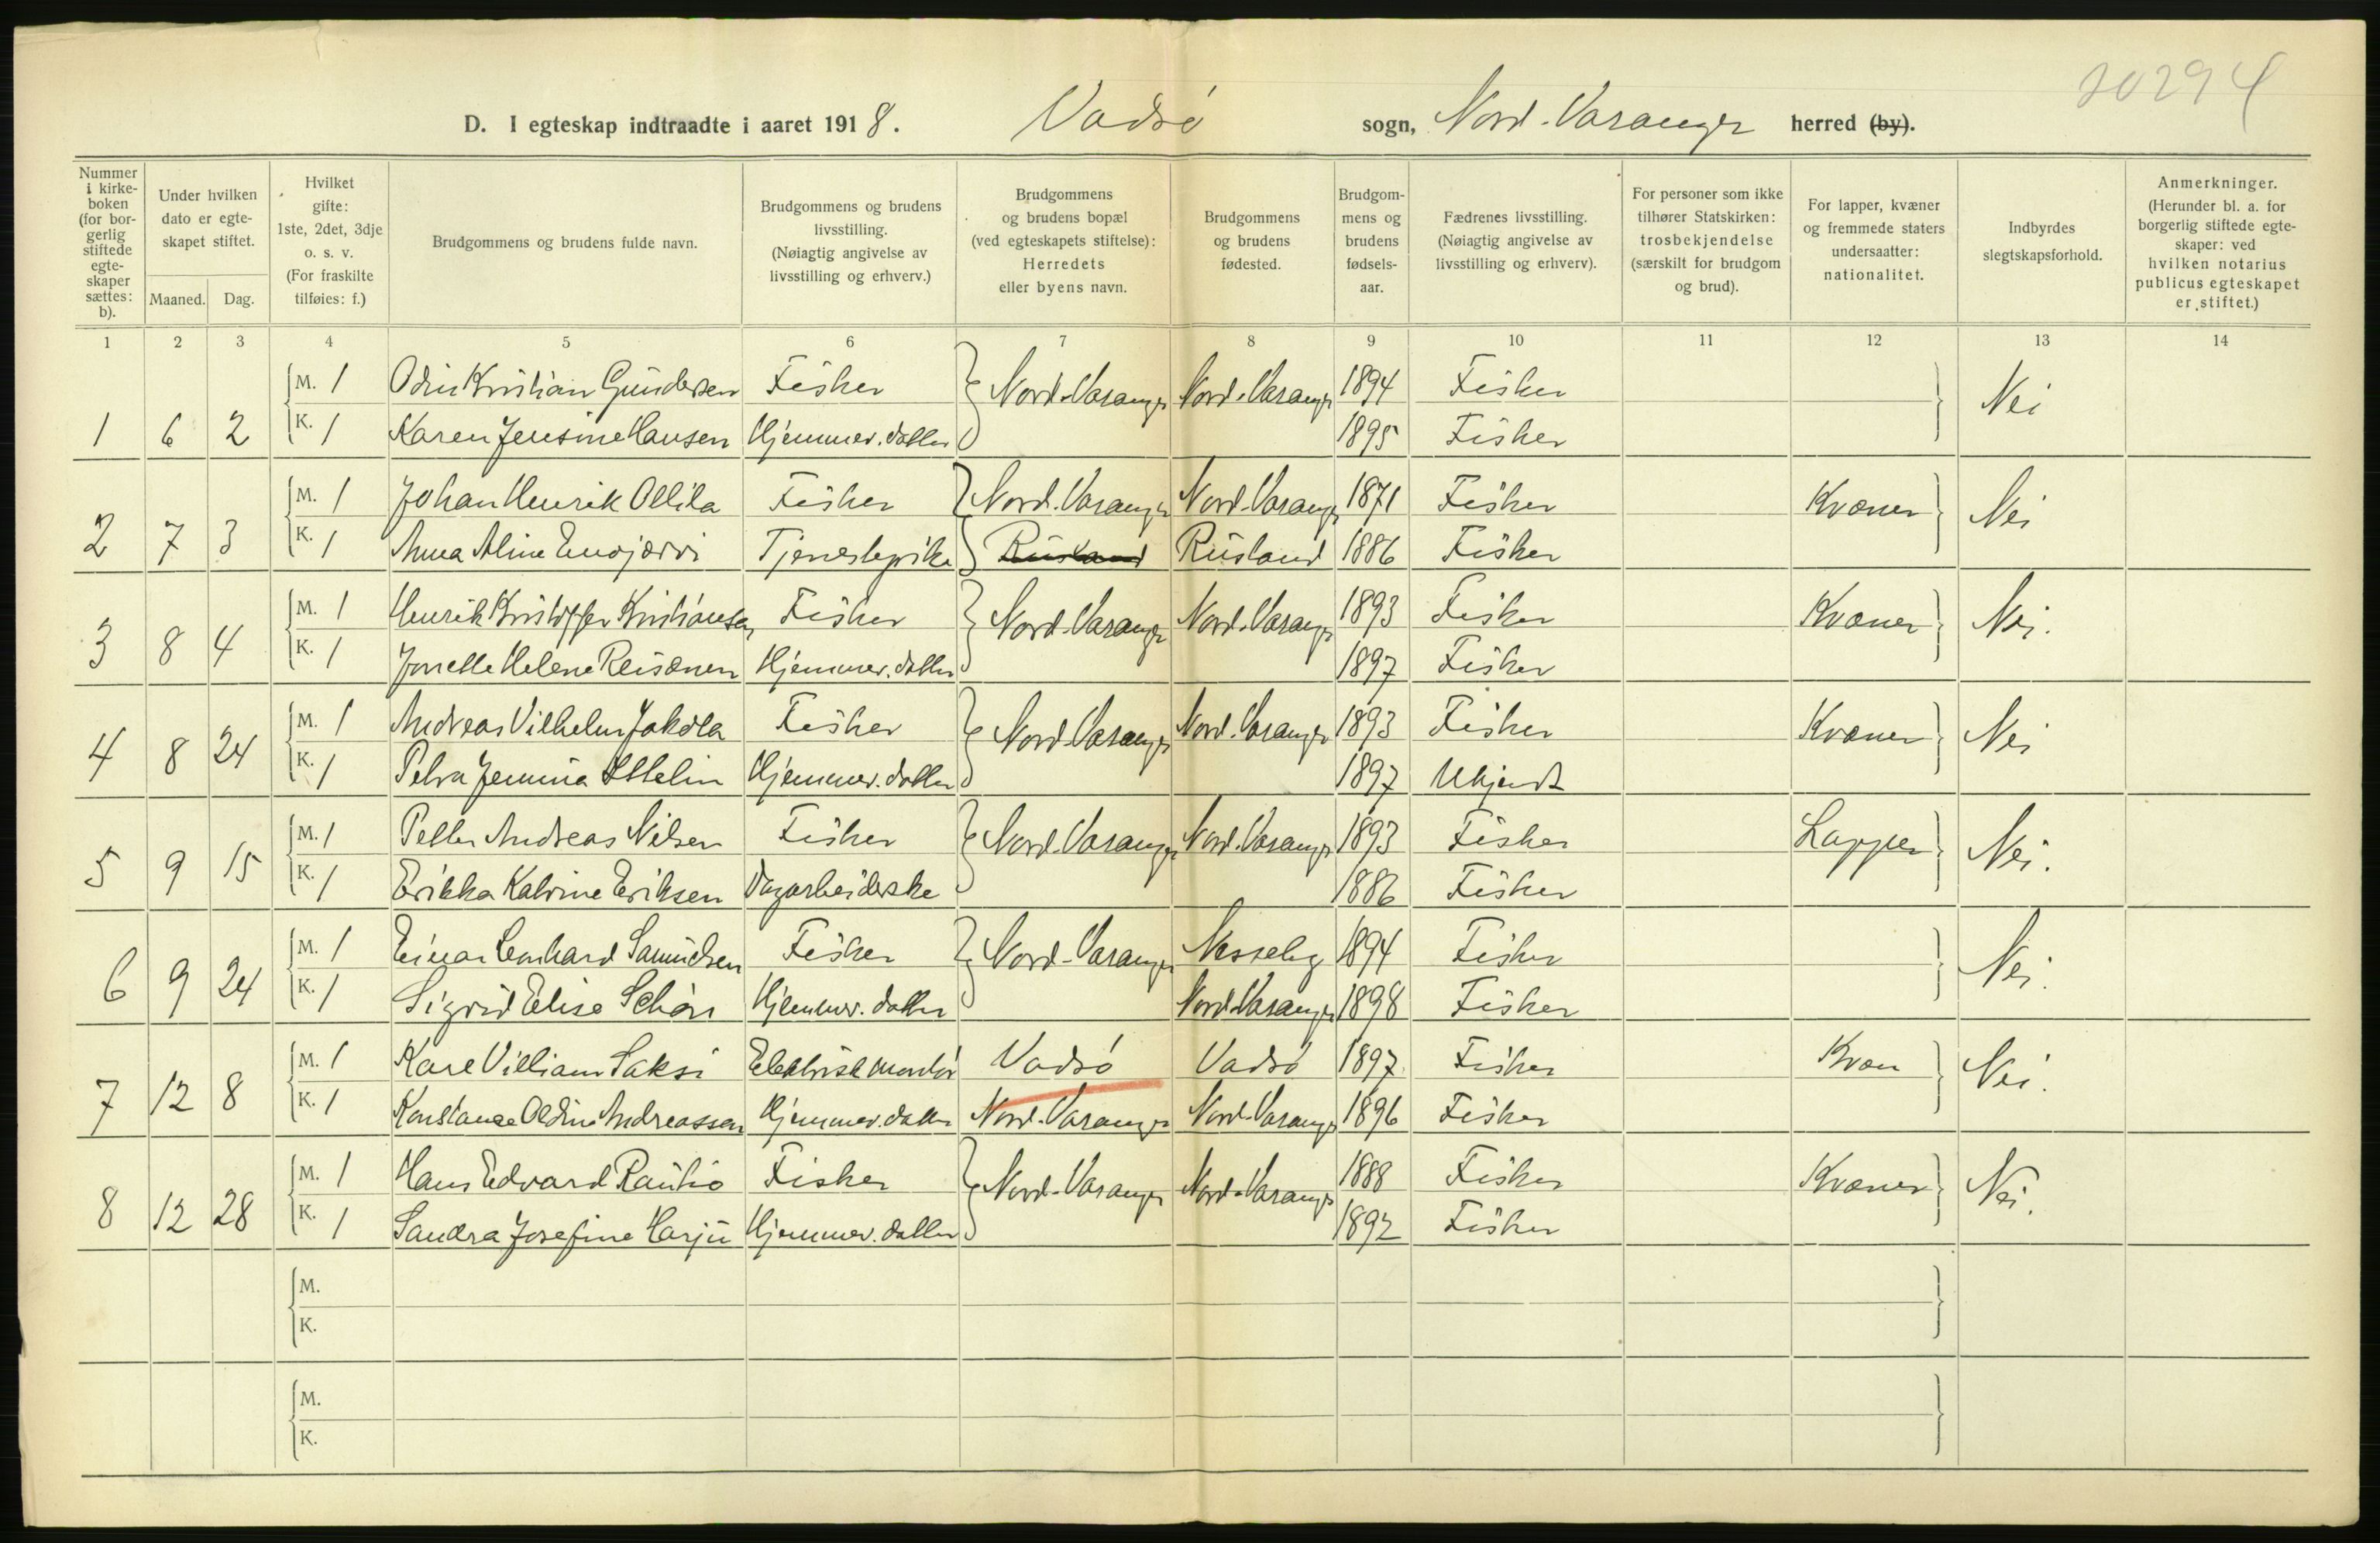 20294
D. I egteskap indtraadte i aaret 1918. Vadsö sogn, Nord-Varanger herred (by).
Nummer i kirkeboken (for borgerlig stiftede egteskaper sættes: b).
Under hvilken dato er egteskapet stiftet.
Maaned. Dag.
Hvilket gifte: 1ste, 2det, 3dje o. s. v. (For fraskilte tilføies: f.)
Brudgommens og brudens fulde navn.
Brudgommens og brudens livsstilling. (Nøiagtig angivelse av livsstilling og erhverv.)
Brudgommens og brudens bopæl (ved egteskapets stiftelse): Herredets eller byens navn.
Brudgommens og brudens fødested.
Brudgommens og brudens fødselsaar.
Fædrenes livsstilling. (Nøiagtig angivelse av livsstilling og erhverv).
For personer som ikke tilhører Statskirken: trosbekjendelse (særskilt for brudgom og brud).
For lapper, kvæner og fremmede staters undersaatter: nationalitet.
Indbyrdes slegtskapsforhold.
Anmerkninger. (Herunder bl. a. for borgerlig stiftede egteskaper: ved hvilken notarius publicus egteskapet er stiftet.)
1 2 3 4 5 6 7 8 9 10 11 12 13 14
M. 1 Odin Kristian Gundersen Fisker Nord-Varanger Nord-Varanger 1894 Fisker Nei
1 6 2 K. 1 Karen Jensine Hansen Hjemmev. datter 1895 Fisker
M. 1 Johan Henrik Ollila Fisker Nord-Varanger Nord-Varanger 1871 Fisker Kvæner Nei
2 7 3 K. 1 Anna Aline Enojærvi Tjenestepike Rusland Rusland 1886 Fisker
M. 1 Henrik Kristoffer Kristiansen Fisker Nord-Varanger Nord-Varanger 1893 Fisker Kvæner Nei.
3 8 4 K. 1 Jonette Helene Reisænen Hjemmev. datter 1897 Fisker
M. 1 Andreas Vilhelm Jakola Fisker Nord-Varanger Nord-Varanger 1893 Fisker Kvæner Nei
4 8 24 K. 1 Petra Jemina Hjemmev. datter 1897 Ukjendt
M. 1 Petter Andreas Nilsen Fisker Nord-Varanger Nord-Varanger 1893 Fisker Lapper Nei.
5 9 15 K. 1 Erikka Katrine Eriksen Dagarbeiderske 1886 Fisker
M. 1 Einar Lenhard Samuelsen Fisker Nord-Varanger Nesseby 1894 Fisker Nei.
6 9 24 K. 1 Sigrid Elise Schön Hjemmev. datter Nord-Varanger 1898 Fisker
M. 1 Karl Villiam Saksi Elektrisk montör Vadsö Vadsö 1897 Fisker Kvæn Nei.
7 12 8 K. 1 Konstanse Oldine Andreassen Hjemmev. datter Nord-Varanger Nord-Varanger 1896 Fisker
M. 1 Hans Edvard Rautio Fisker Nord-Varanger Nord-Varanger 1888 Fisker Kvæner Nei.
8 12 28 K. 1 Sandra Josefine Harju Hjemmev. datter 1892 Fisker
M.
K.
M.
K.